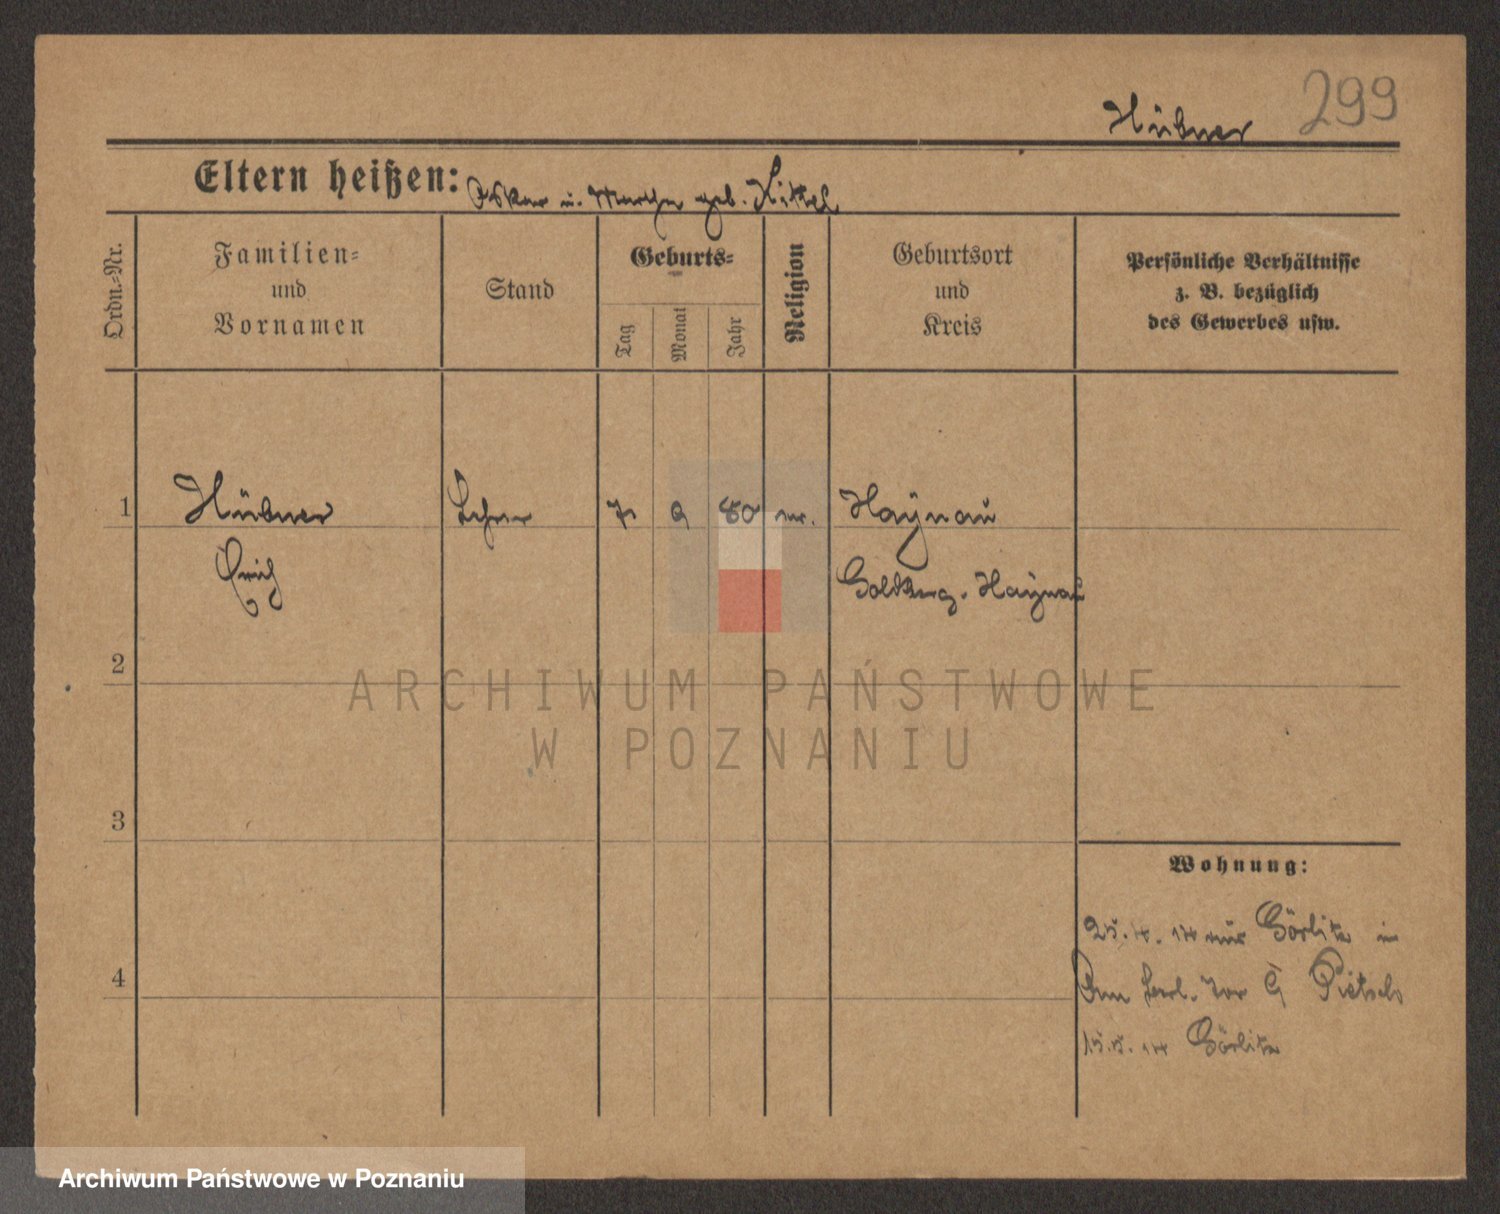 299
Hübner
Eltern heißen: Oskar u. Martha geb. Kittel
Ordn.-Nr.
Familien-
und
Vornamen
Stand
Geburts-
Tag
Monat
Jahr
Religion
Geburtsort
und
Kreis
Persönliche Verhältnisse
z. B. bezüglich
des Gewerbes usw.
1 Hübner Lehrer 7 9 80 ev. Haynau
Erich Goldberg-Haynau
2
ARCHIWUM PAŃSTWOWE
W POZNANIU
3
Wohnung:
Görlitz in
4
Am Berl. Tor 9 Pietsch
Görlitz
Archiwum Państwowe w Poznaniu